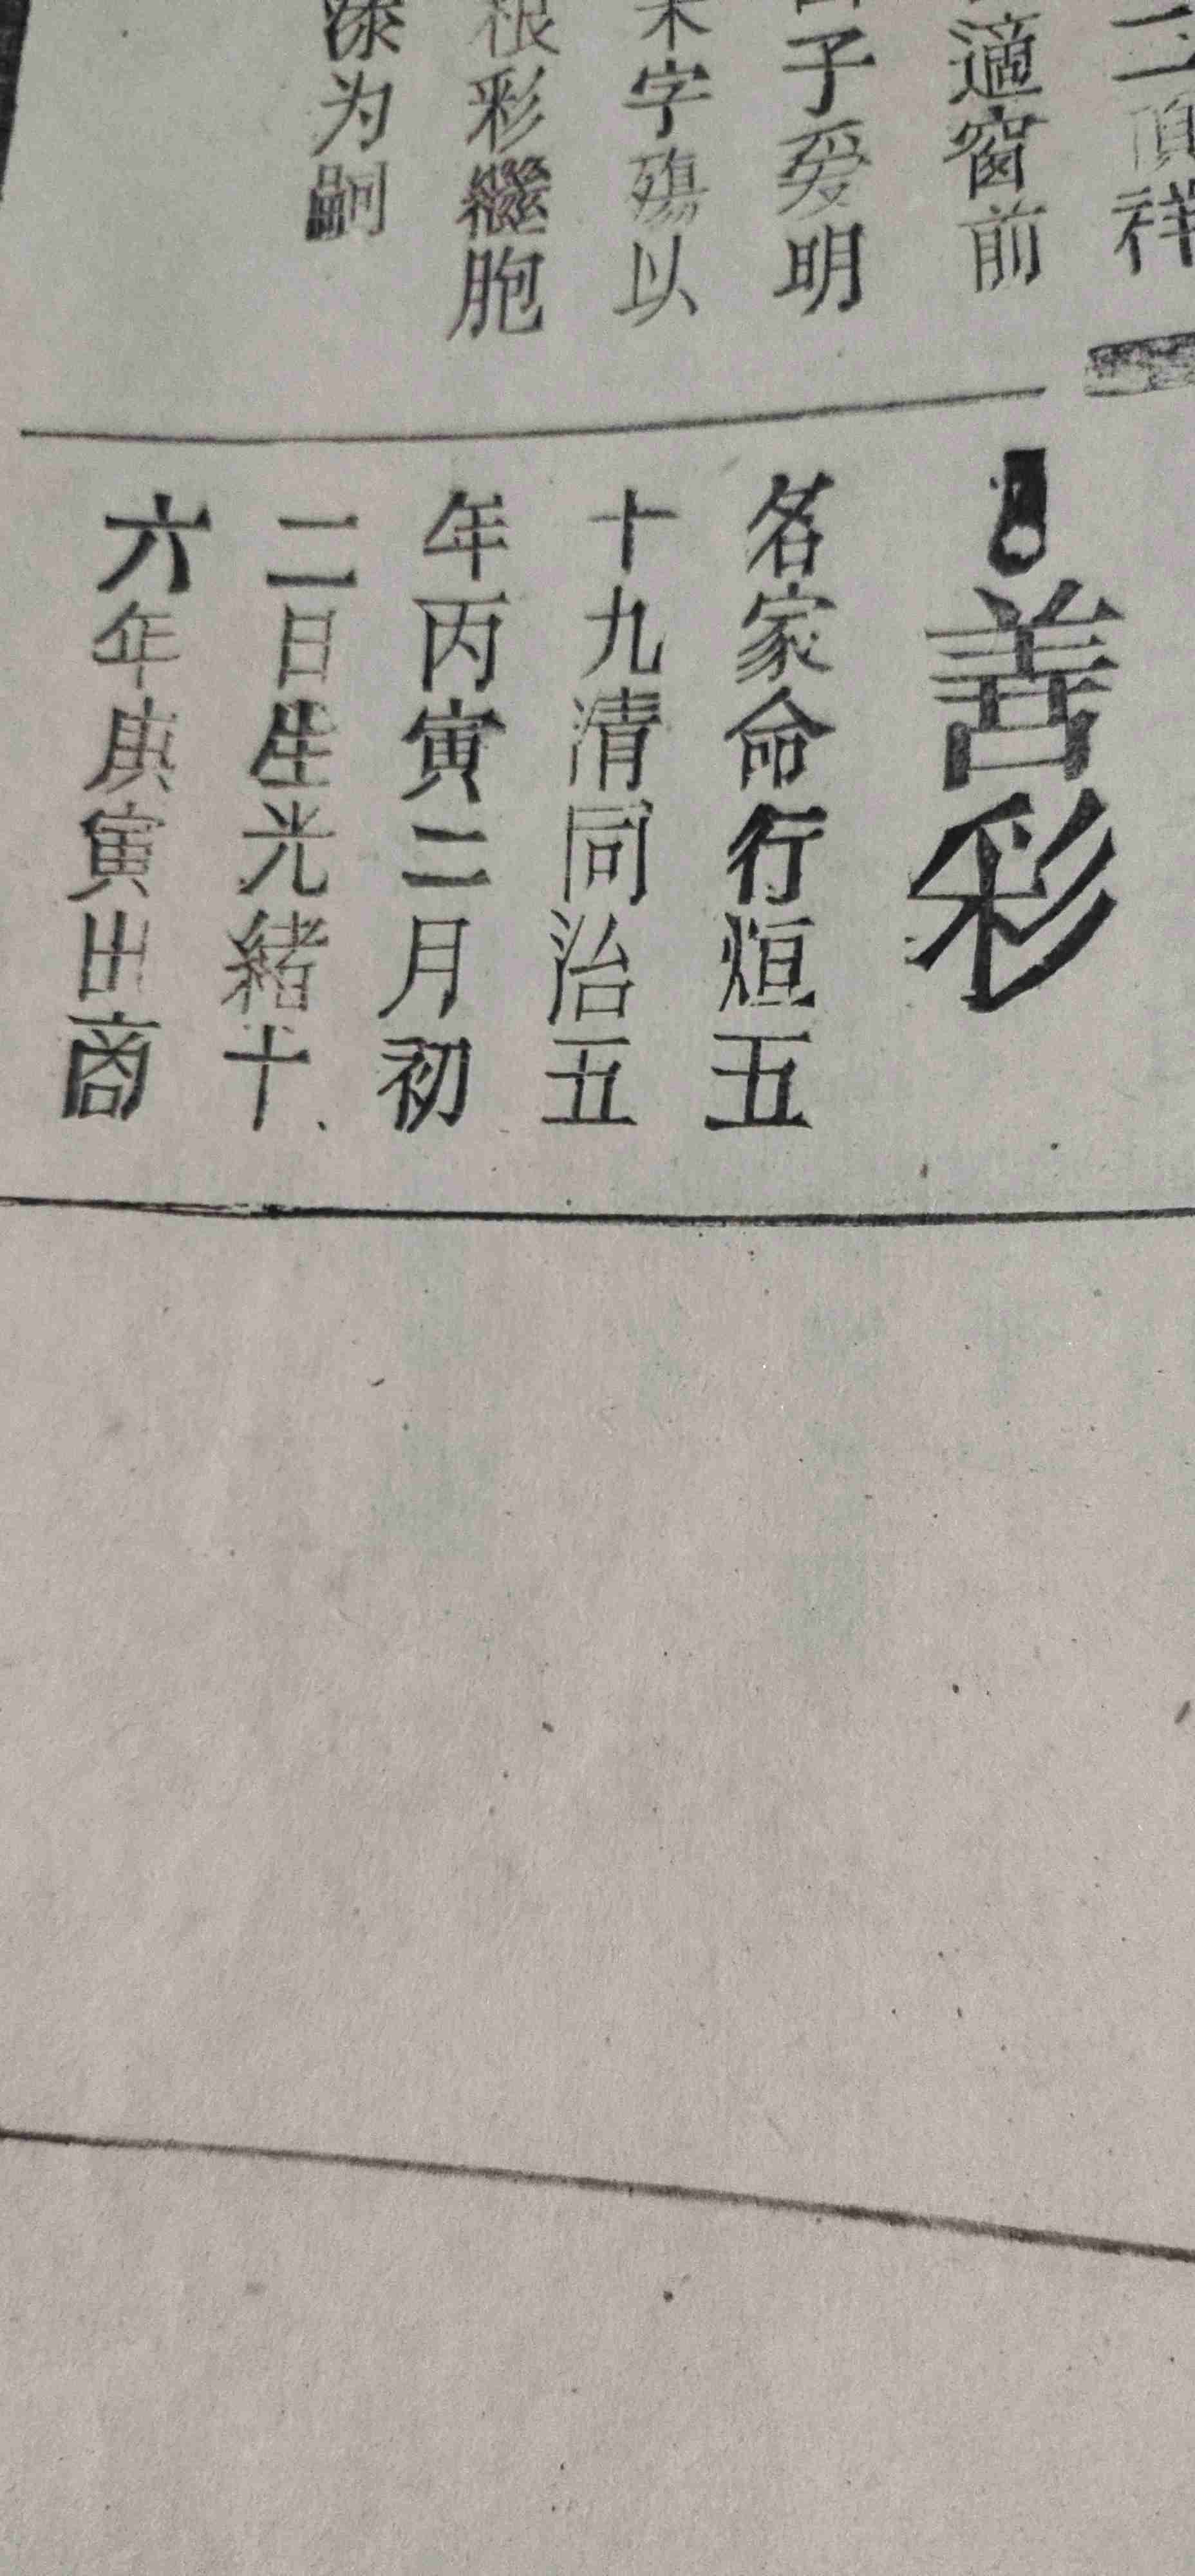 二頂祥
適窗前
子爱明
字殤以
根彩繼胞
漆为嗣
善彩
名家命行烜五
十九清同治五
年丙寅二月初
二日生光緒十
六年庚寅出商